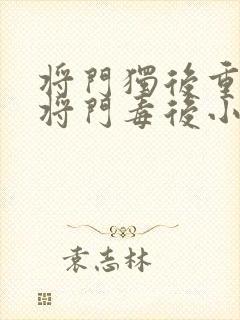 将門獨後重
将門毒後小
袁志林